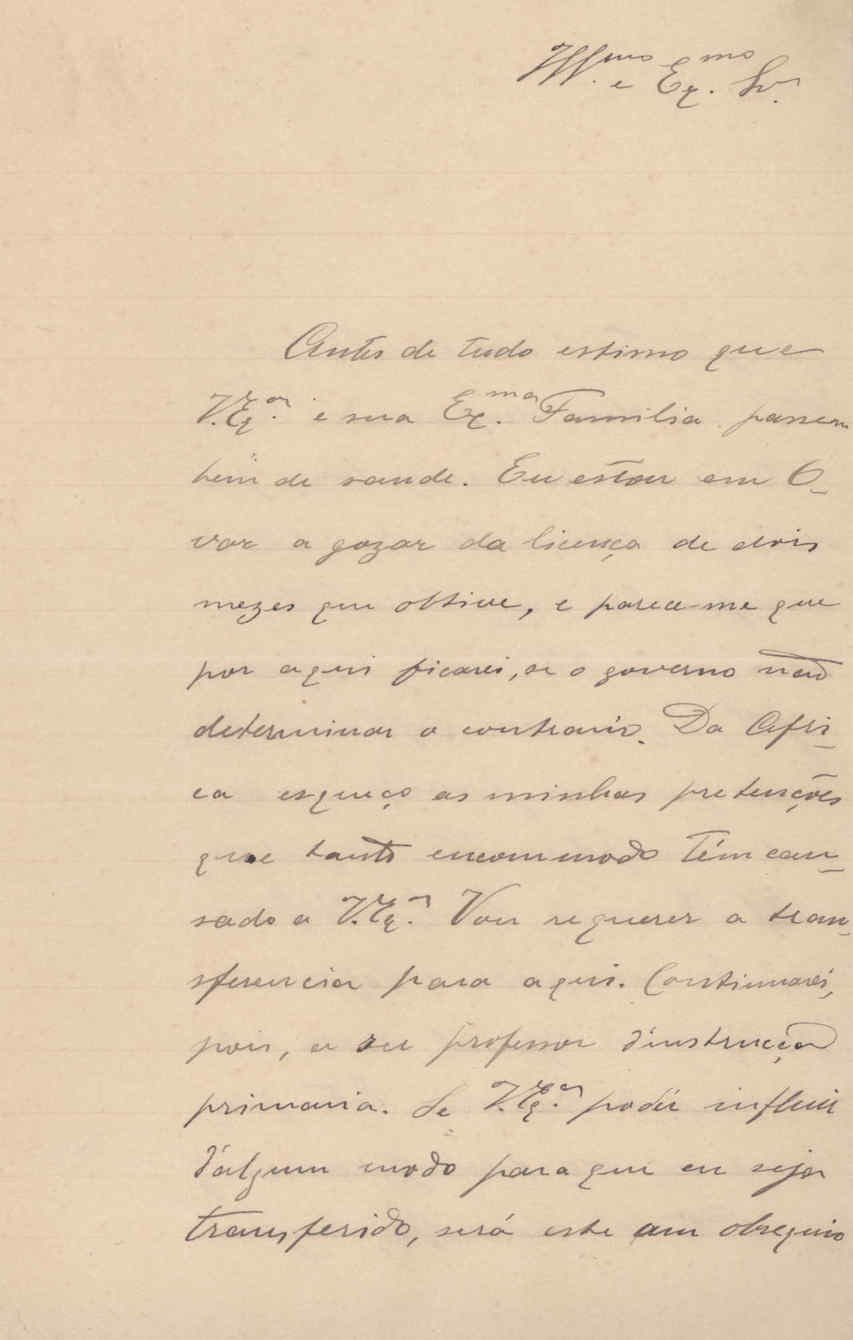 Ill.mo e Ex.mo Sr.
Antes de tudo estimo que
V. Ex.a e sua Ex.ma Familia passem
bem de saude. Eu estou em O-
var a gozar da licença de dois
mezes que obtive, e parece-me que
por aqui ficarei, se o governo não
determinar o contrario. Da Afri-
ca esqueço as minhas pretenções
que tanto encommodo têm cau-
sado a V. Ex.a Vou requerer a tran-
sferencia para aqui. Continuarei,
pois, a ser professor d'instrucção
primaria. Se V. Ex.a podér influir
d'algum modo para que eu seja
transferido, será este um obsequio